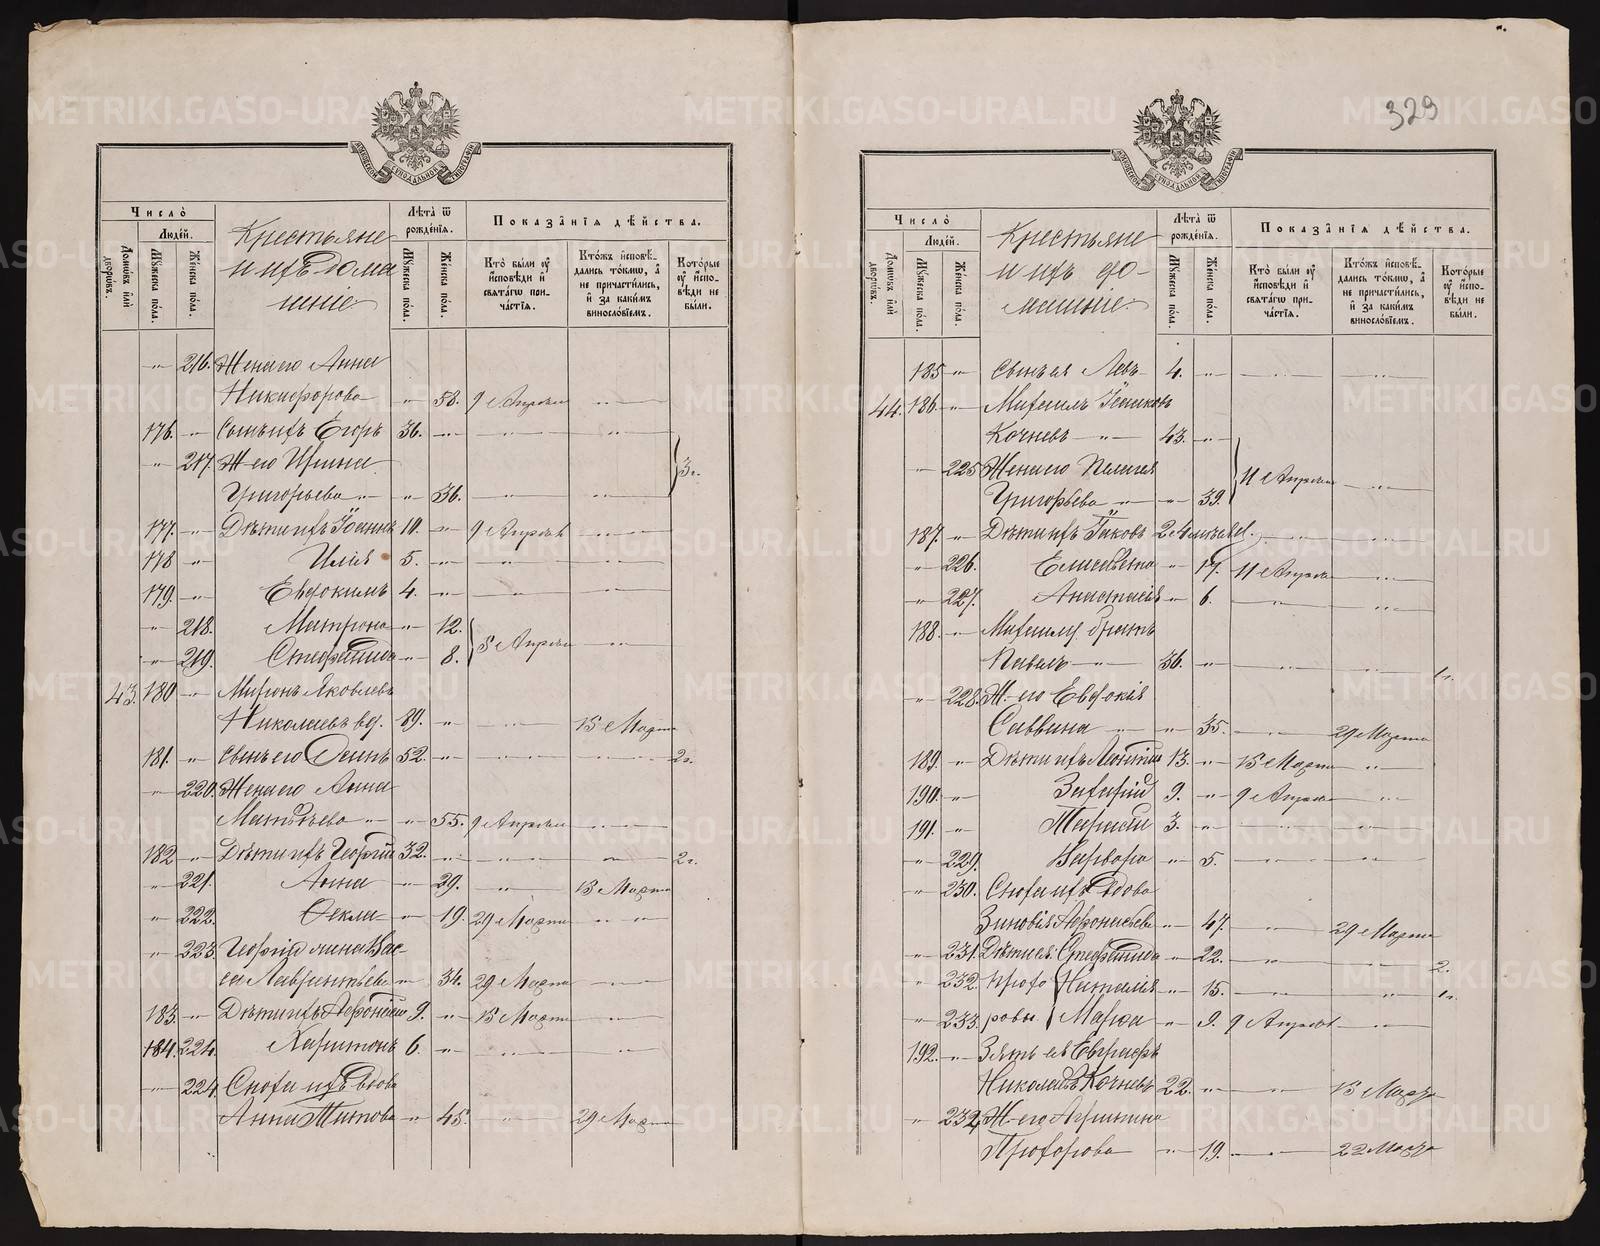 329
МОСКОВСКОЙ СѴНОДАЛЬНОЙ ТИПОГРАФІИ
Число̀
Людей.
Домѡвъ илѝ дворѡвъ.
Мꙋжеска пола.
Женска пола.
Крестьяне
и ихъ дома
шніе.
Лѣта̀ ѿ рожденїѧ.
Мꙋжеска пола.
Женска пола.
Показанїѧ дѣйства.
Кто̀ были ᲂу҆ и҆сповѣди и҆ свѧтагѡ причастїѧ.
Кто́жъ и҆сповѣдались то́кмѡ, а҆ не причастились, и҆ за какимъ винословїемъ.
Которые ᲂу҆ и҆сповѣди не были.
" 216. Жена его Анна
Никифорова " 58. 9 е Апреля "
176. " Сынъ ихъ Егоръ 36. " " "
" 217. Ж. его Ирина } 3 г.
Григорьева " " 36. " "
177. " Дѣти ихъ Іоаннъ 10. " 9 е Апреля "
178 " Илія 5. " " "
179. " Евдокимъ 4. " " "
" 218. Матрона " 12. } 8 е Апреля "
" 219. Стефанида " 8.
43. 180 " Миронъ Яковлевъ
Николаевъ вд. 89. " " 15 е Марта
181. " Сынъ его Осипъ 52. " " " 2 г.
" 220. Жена его Анна
Матѳеева " " 55. 9 е Апреля "
182 " Дѣти ихъ Георгій 32. " " " 2 г.
" 221. Анна " 29. " 15 е Марта
" 222. Ѳекла " 19. 29 е Марта "
" 223. Георгія жена Вас-
са Лаврентьева " 34. 29 е Марта "
183. " Дѣти ихъ Аѳонасій 9. " 15 е Марта "
184. 224. Харитонъ 6. " " "
" 224. Сноха ихъ вдова
Анна Титова " 45. " 29 е Марта
Число̀
Людей.
Домѡвъ илѝ дворѡвъ.
Мꙋжеска пола.
Женска пола.
Крестьяне
и ихъ до-
машніе.
Лѣта̀ ѿ рожденїѧ.
Мꙋжеска пола.
Женска пола.
Показанїѧ дѣйства.
Кто̀ были ᲂу҆ и҆сповѣди и҆ свѧтагѡ причастїѧ.
Кто́жъ и҆сповѣдались то́кмѡ, а҆ не причастились, и҆ за какимъ винословїемъ.
Которые ᲂу҆ и҆сповѣди не были.
185 " Сынъ ея Левъ 4. " " "
44. 186. " Михаилъ
Кочневъ " 43. "
" 225 Жена его Пелагея } 11 е Апреля "
Григорьева " " 39.
187. " Дѣти ихъ Іаковъ " "
" 226. Елисавета " 17. 11 е Апреля "
" 227. Анастасія " 6. " "
188. " Михаила братъ
Павелъ " 36. " " " 1 г.
" 228. Ж. его Евдокія
Саввина " " 35. " 29 е Марта
189. " Дѣти ихъ Леонтій 13. " 15 е Марта "
190. " Захарій 9. " 9 Апреля "
191. " Тарасій 3. " " "
" 229. Варвара " 5. " "
" 230. Сноха ихъ вдова
Зиновія Аѳонасьева " 47. " 29 е Марта
" 231. Дѣти ея Стефанида " 22. " " 2.
" 232. Прохо { Наталія " 15. " " 1 г.
" 233. ровы { Марѳа " 9. 9 Апреля "
192. " Зять ея Евграфъ
Николаевъ Кочневъ 22. " " 15 Марта
" 234. Ж. его Агрипина
Прохорова " 19. " 22 Марта
METRIKI.GASO-URAL.RU